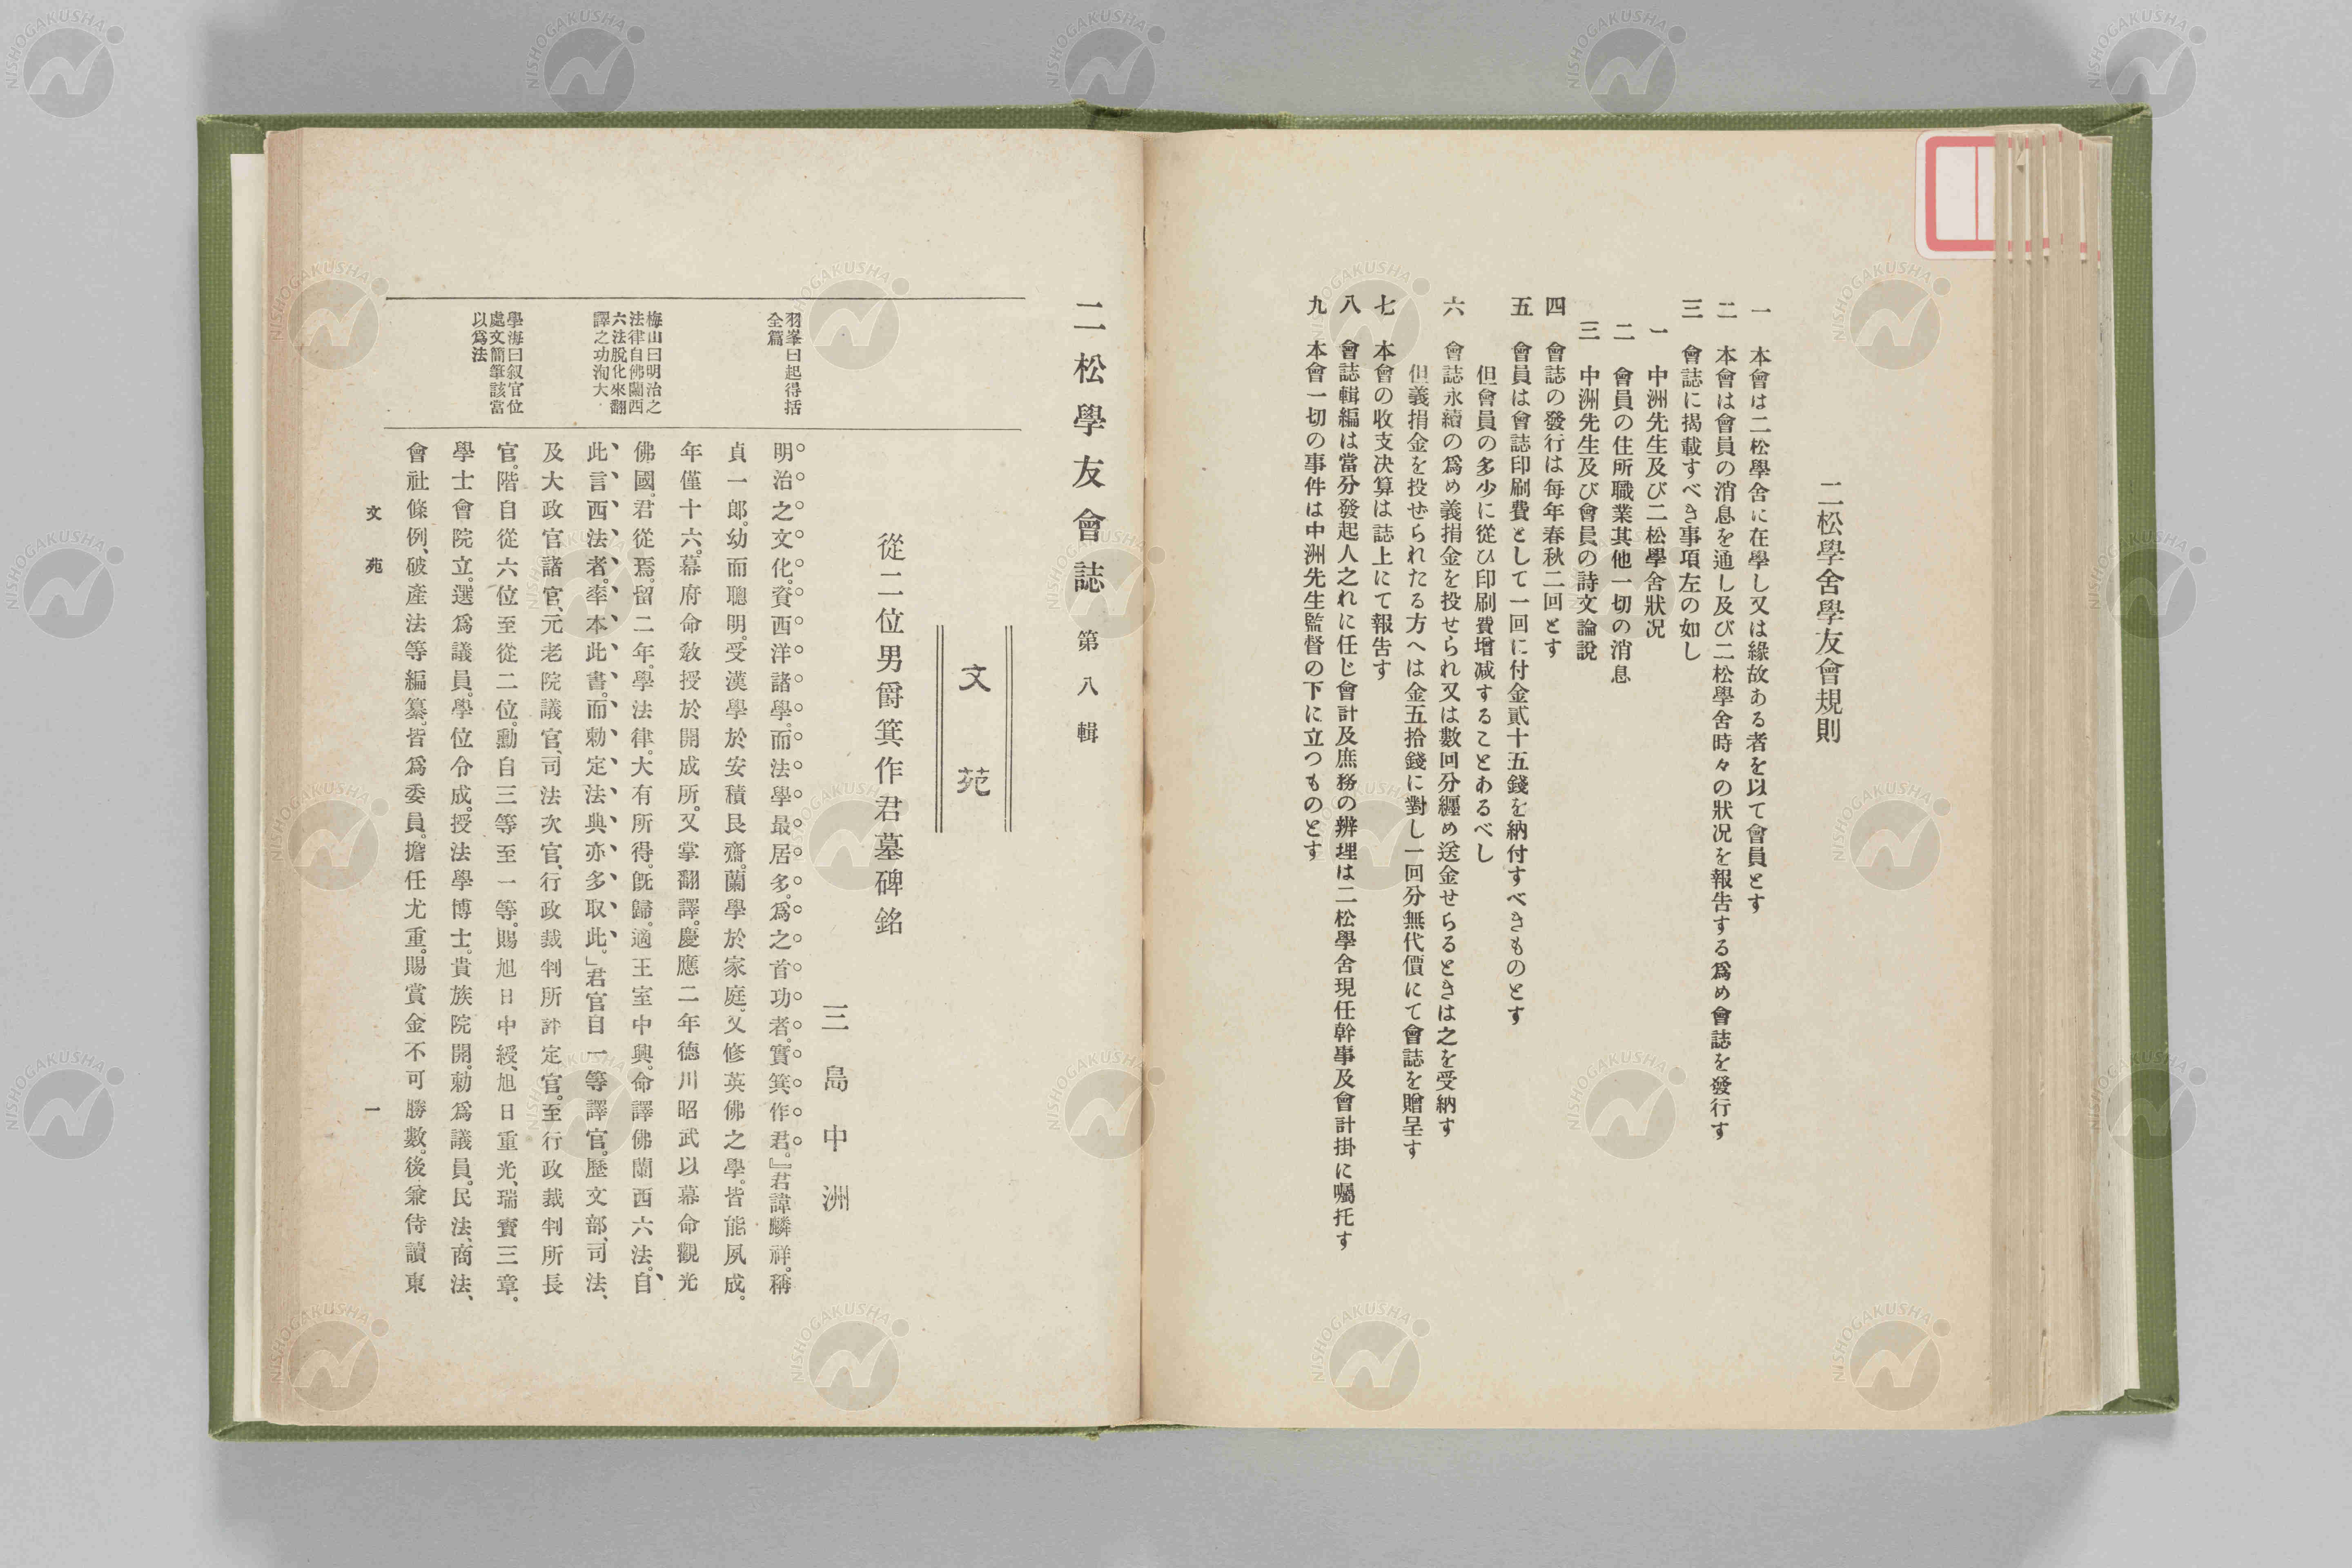 二松學舍學友會規則
一　本會は二松學舍に在學し又は緣故ある者を以て會員とす
二　本會は會員の消息を通し及び二松學舍時々の狀況を報告する爲め會誌を發行す
三　會誌に揭載すべき事項左の如し
一　中洲先生及び二松學舍狀況
二　會員の住所職業其他一切の消息
三　中洲先生及び會員の詩文論說
四　會誌の發行は每年春秋二回とす
五　會員は會誌印刷費として一回に付金貳十五錢を納付すべきものとす
但會員の多少に從ひ印刷費增减することあるべし
六　會誌永續の爲め義捐金を投せられ又は數回分纒め送金せらるときは之を受納す
但義捐金を投せられたる方へは金五拾錢に對し一回分無代價にて會誌を贈呈す
七　本會の收支決算は誌上にて報告す
八　會誌輯編は當分發起人之れに任じ會計及庶務の辨理は二松學舍現任幹事及會計掛に囑托す
九　本會一切の事件は中洲先生監督の下に立つものとす
二松學友會誌　第八輯
文苑
從二位男爵箕作君墓碑銘
三島中洲
羽峯曰起得括
全篇
明治之文化。資西洋諸學。而法學最居多。爲之首功者。實箕作君。』君諱麟祥。稱
貞一郎。幼而聰明。受漢學於安積艮齋。蘭學於家庭。又修英佛之學。皆能夙成。
年僅十六。幕府命敎授於開成所。又掌翻譯。慶應二年德川昭武以幕命觀光
梅山曰明治之
法律自佛蘭西
六法脫化來翻
譯之功洵大
佛國。君從焉。留二年。學法律。大有所得。旣歸。適王室中興。命譯佛蘭西六法。自
此言西法者。率本此書。而勅定法典亦多取此。」君官自一等譯官。歷文部、司法、
及大政官諸官、元老院議官、司法次官、行政裁判所評定官。至行政裁判所長
學海曰叙官位
處文簡筆該當
以爲法
官。階自從六位至從二位。勳自三等至一等。賜旭日中綬、旭日重光、瑞寶三章。
學士會院立。選爲議員。學位令成。授法學博士。貴族院開。勅爲議員。民法、商法、
會社條例、破產法等編纂。皆爲委員。擔任尤重。賜賞金不可勝數。後兼侍讀東
文苑
一
NISHOGAKUSHA